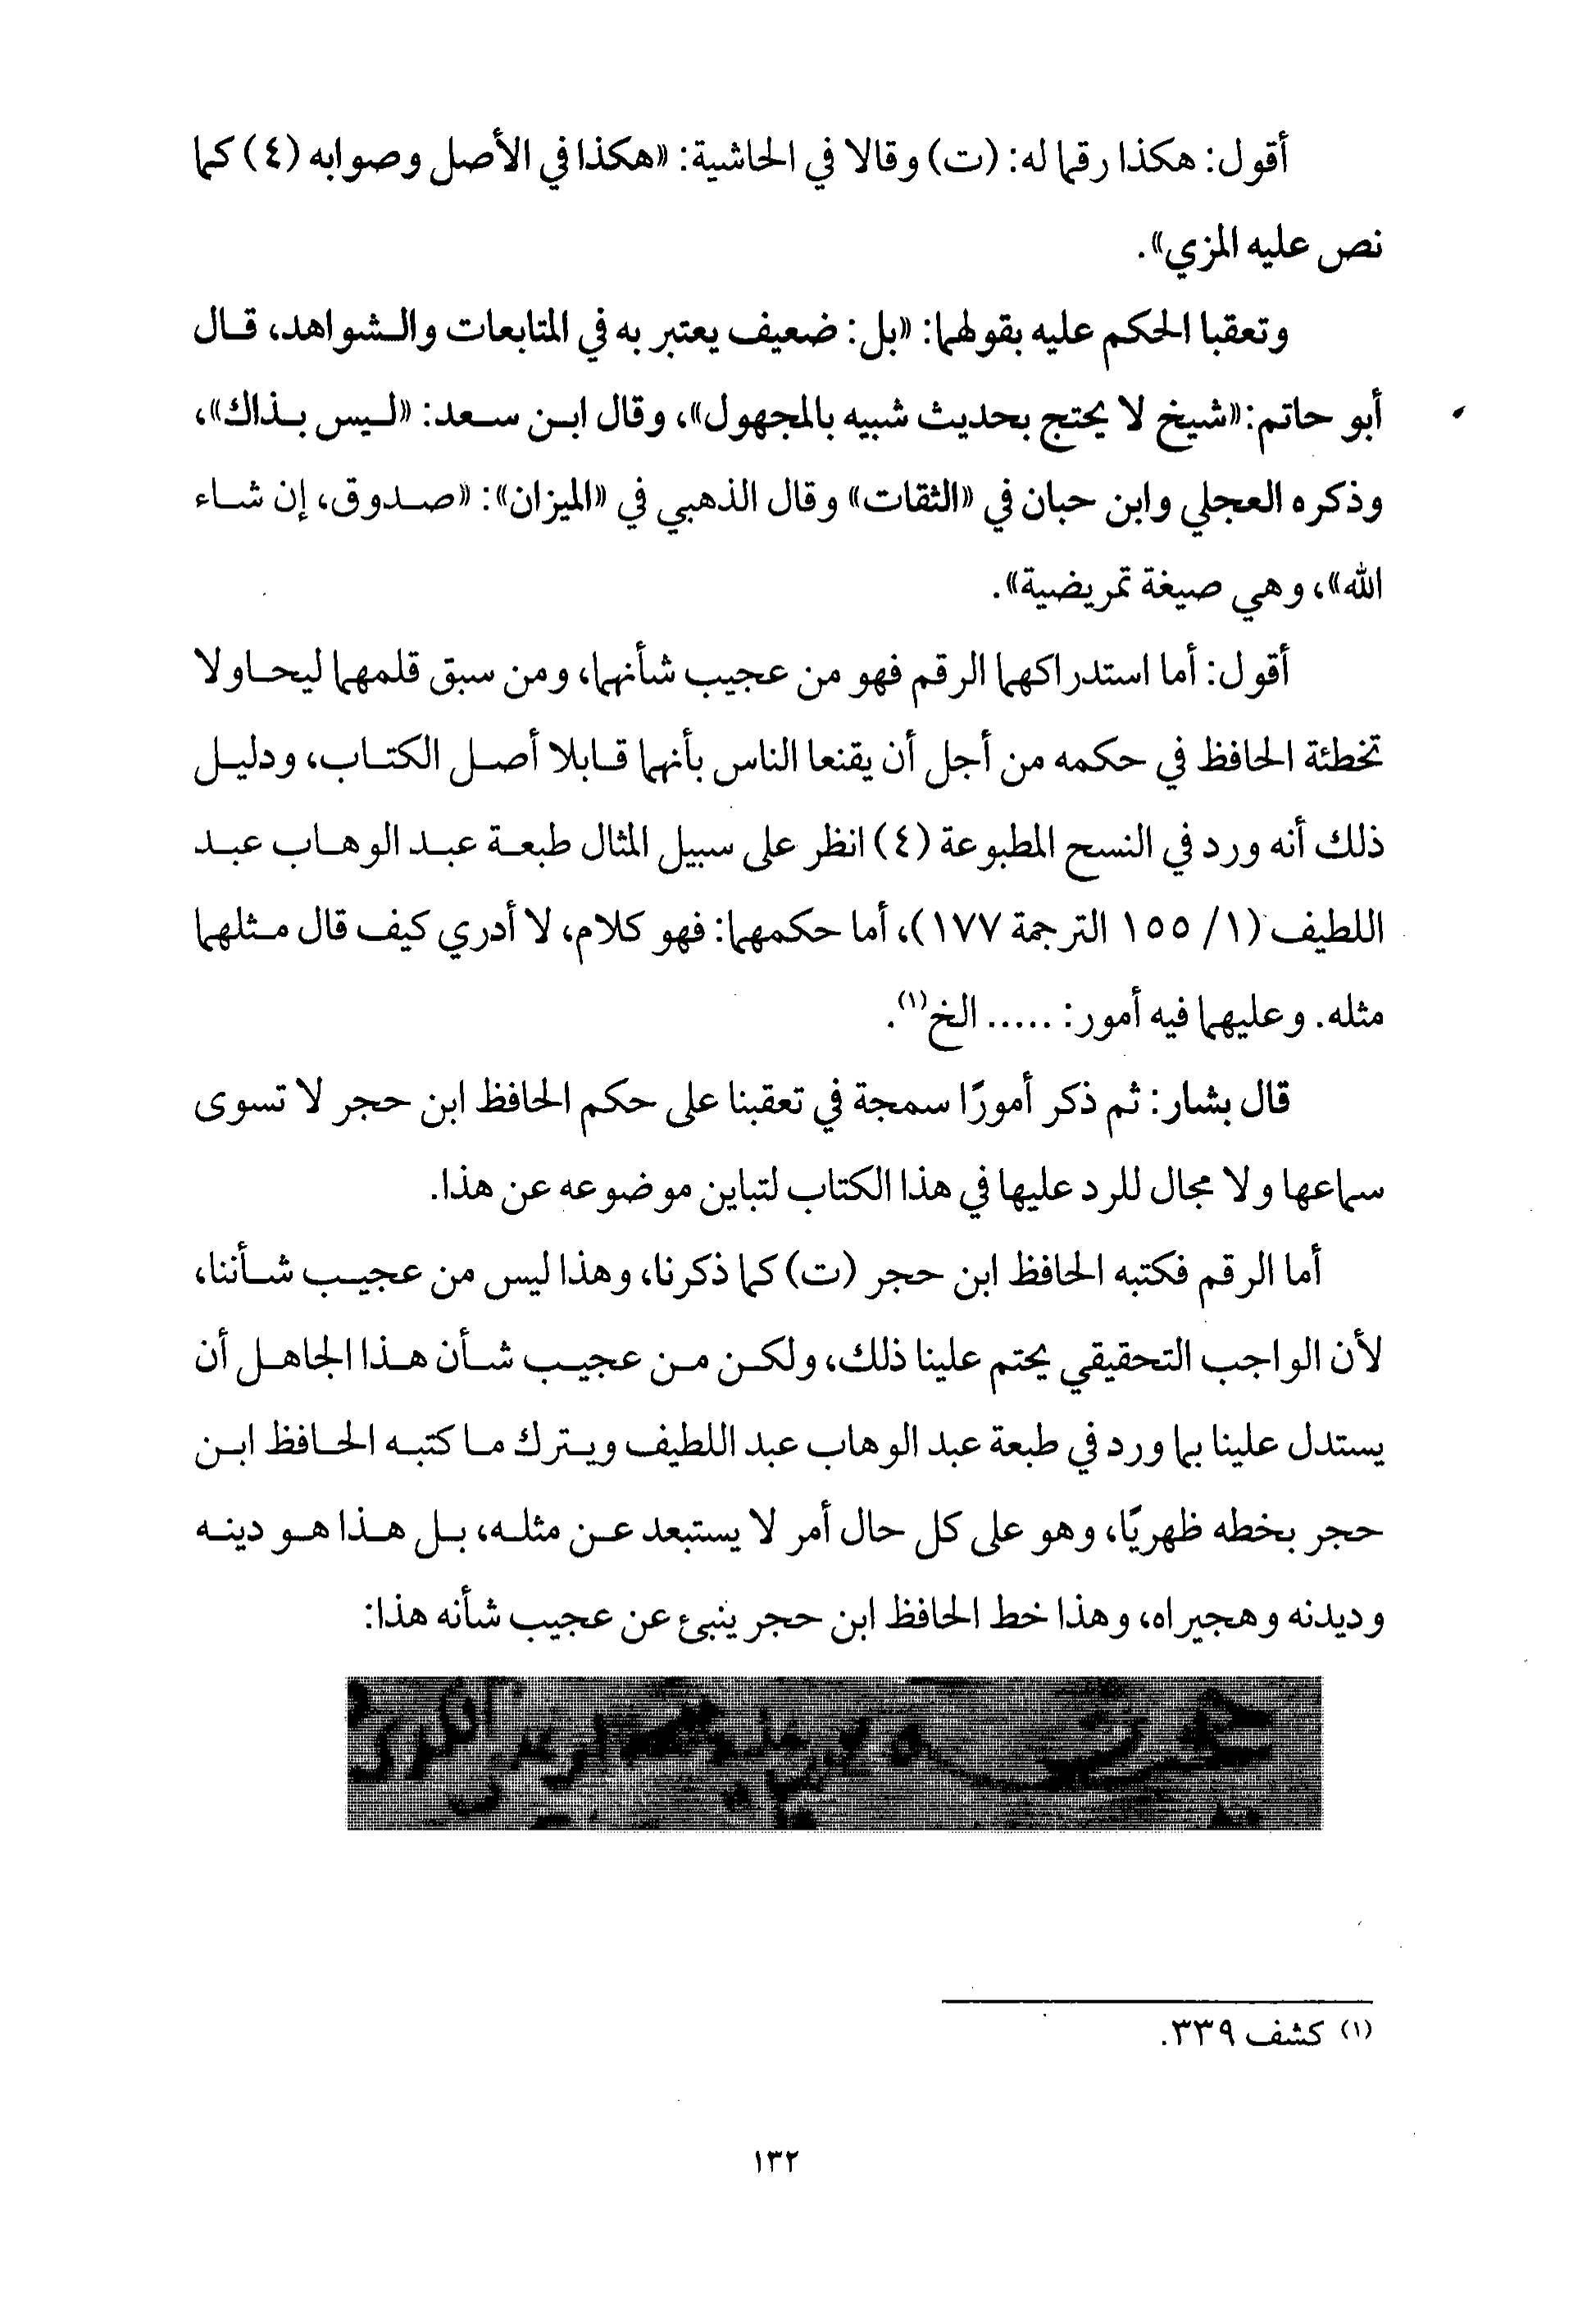 أقول: هكذا رقما له: (ت) وقالا في الحاشية: «هكذا في الأصل وصوابه (٤) كما
نص عليه المزي».
وتعقبا الحكم عليه بقولهما: «بل: ضعيف يعتبر به في المتابعات والشواهد، قال
أبو حاتم:«شيخ لا يحتج بحديث شبيه بالمجهول»، وقال ابن سعد: «ليس بذاك»،
وذكره العجلي وابن حبان في «الثقات» وقال الذهبي في «الميزان»: «صدوق، إن شاء
الله»، وهي صيغة تمريضية».
أقول: أما استدراكهما الرقم فهو من عجيب شأنهما، ومن سبق قلمهما ليحاولا
تخطئة الحافظ في حكمه من أجل أن يقنعا الناس بأنهما قابلا أصل الكتاب، ودليل
ذلك أنه ورد في النسخ المطبوعة (٤) انظر على سبيل المثال طبعة عبد الوهاب عبد
اللطيف (١/ ١٥٥ الترجمة ١٧٧)، أما حكمهما: فهو كلام، لا أدري كيف قال مثلهما
مثله. وعليهما فيه أمور: ..... الخ(١).
قال بشار: ثم ذكر أمورًا سمجة في تعقبنا على حكم الحافظ ابن حجر لا تسوى
سماعها ولا مجال للرد عليها في هذا الكتاب لتباين موضوعه عن هذا.
أما الرقم فكتبه الحافظ ابن حجر (ت) كما ذكرنا، وهذا ليس من عجيب شأننا،
لأن الواجب التحقيقي يحتم علينا ذلك، ولكن من عجيب شأن هذا الجاهل أن
يستدل علينا بما ورد في طبعة عبد الوهاب عبد اللطيف ويترك ما كتبه الحافظ ابن
حجر بخطه ظهريًا، وهو على كل حال أمر لا يستبعد عن مثله، بل هذا هو دينه
وديدنه وهجيراه، وهذا خط الحافظ ابن حجر ينبئ عن عجيب شأنه هذا:
(١) كشف ٣٣٩.
١٣٢